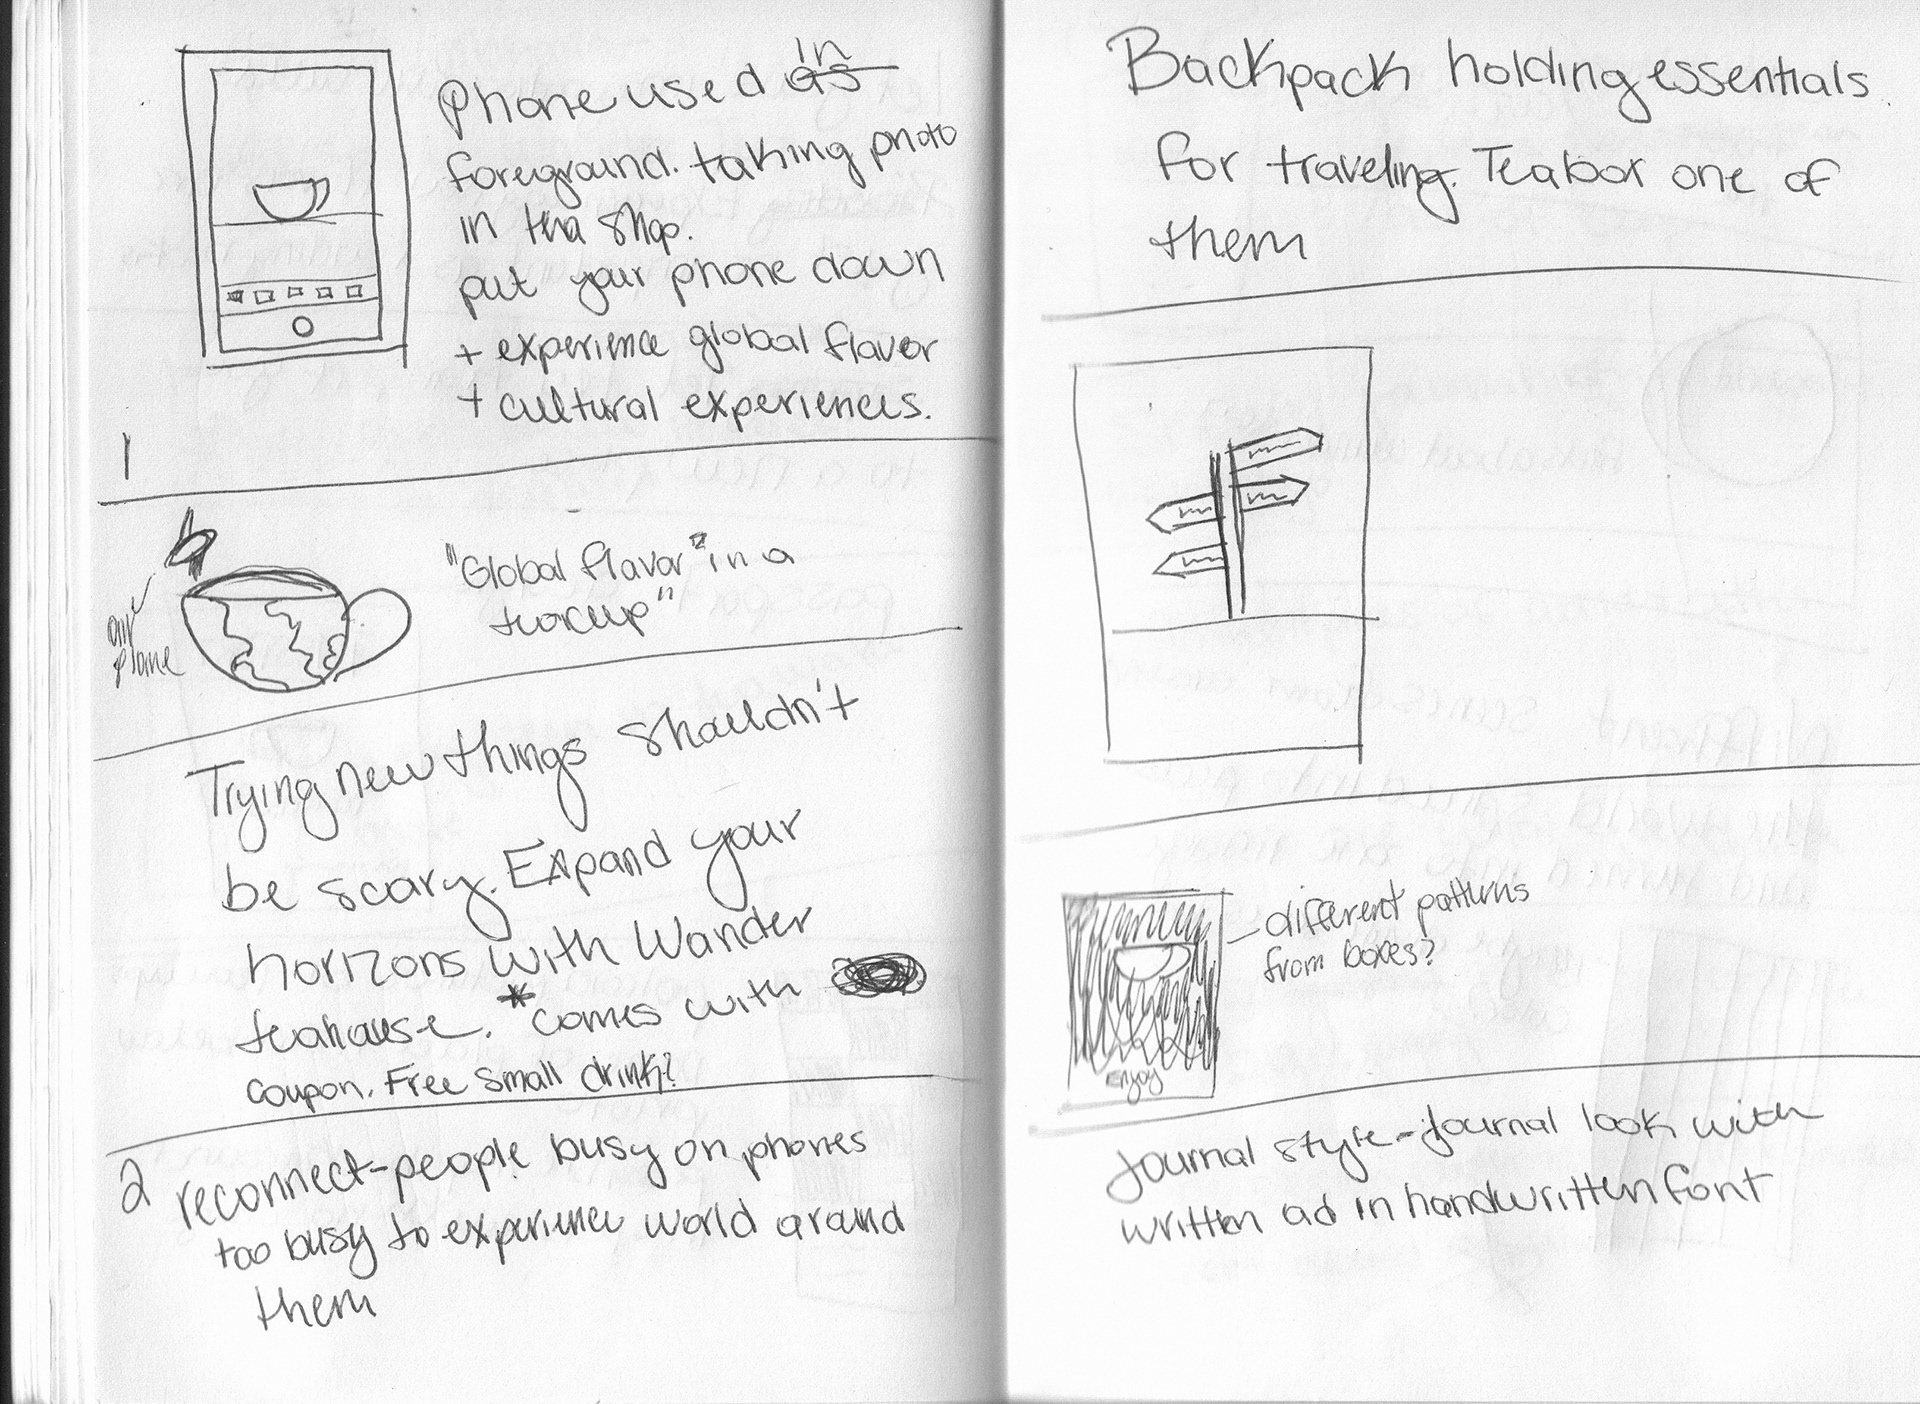 Phone used in as
foreground. taking photo
in tea shop.
put your phone down
+ experience global flavor
+ cultural experiences.
1
air
plane
"Global flavor" in a
teacup"
Trying new things shouldn't
be scary. Expand your
horizons with Wander
teahouse. *comes with
coupon. Free small drink?
2 reconnect-people busy on phones
too busy to experience world around
them
Backpack holding essentials
for traveling. Teabox one of
them
different patterns
from boxes?
Enjoy
Journal style-journal look with
written ad in handwritten font